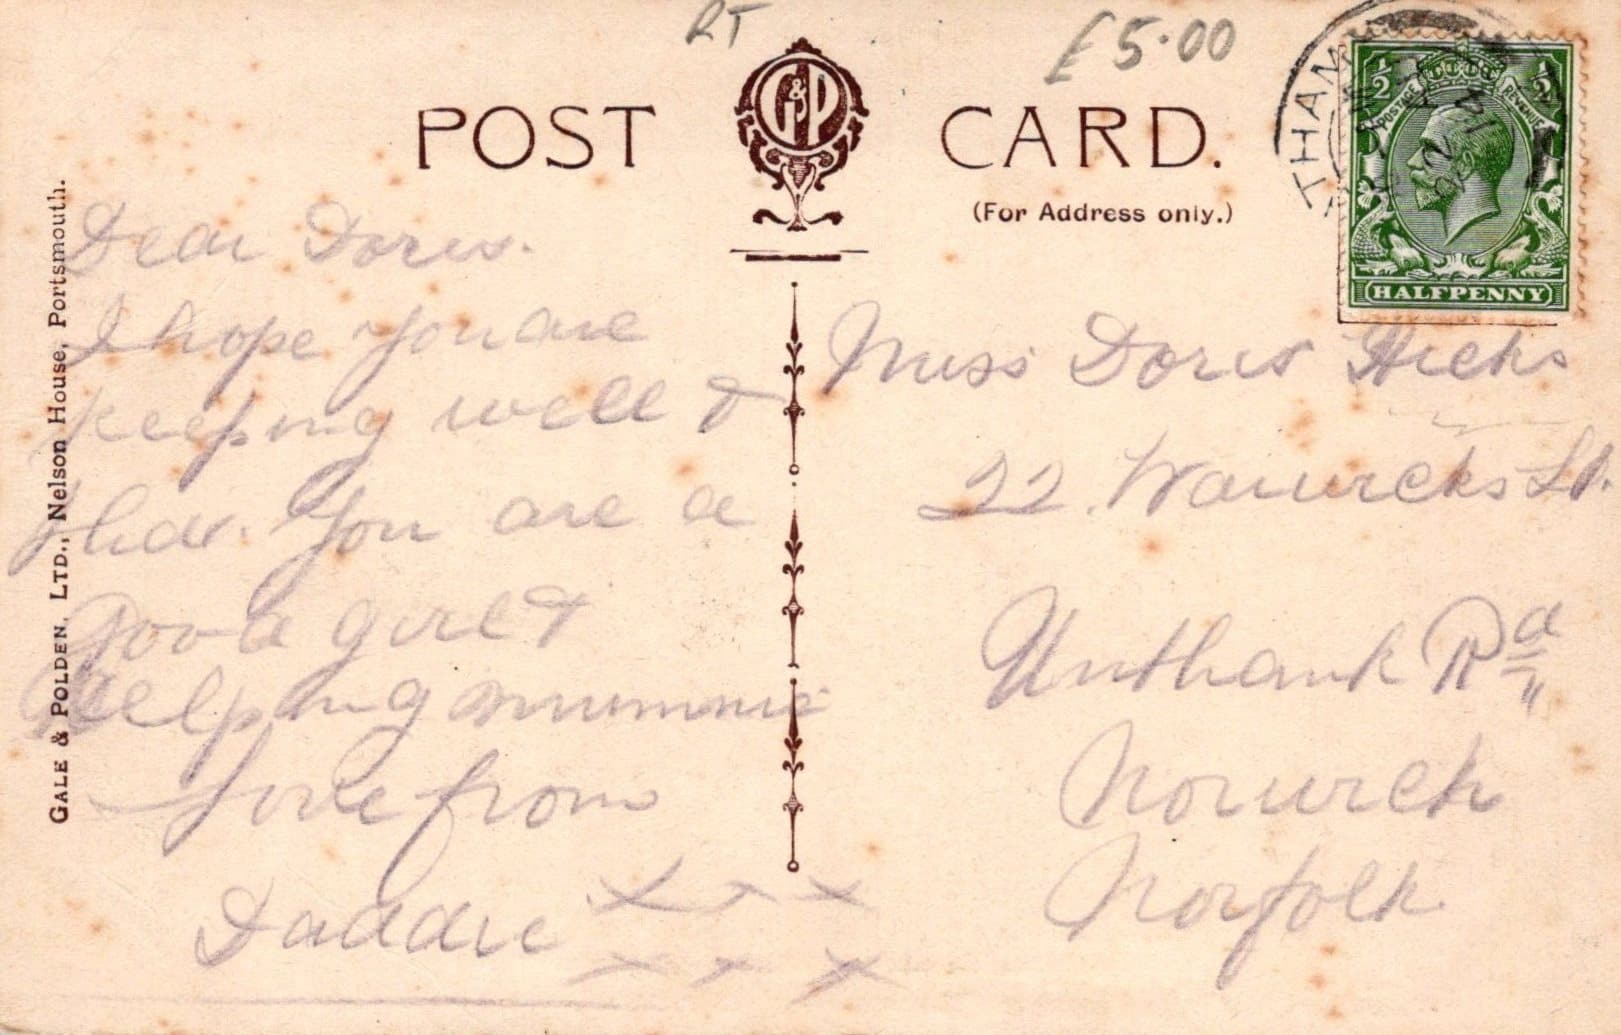 RT
£5.00
POST G&P CARD.
(For Address only.)
THAM
½ ½
POSTAGE REVENUE
HALFPENNY
GALE & POLDEN, LTD., Nelson House, Portsmouth.
Dear Doris.
I hope you are
keeping well &
that you are a
Good girl &
Helping mummie
Love from
Daddie x x x
x x x
Miss Doris Hicks
22. Warwicks St.
Unthank Rd
Norwich
Norfolk.